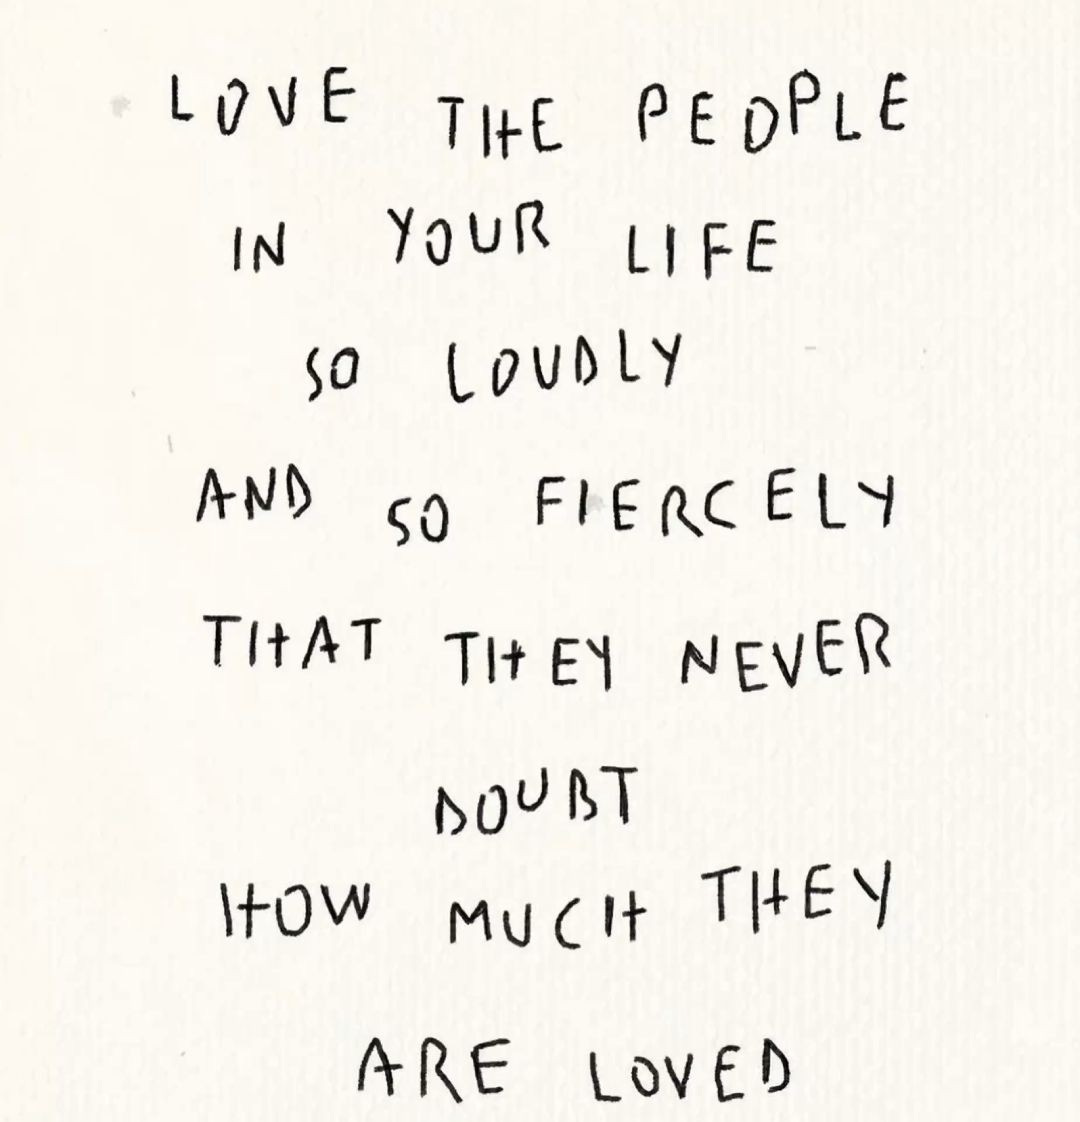 LOVE THE PEOPLE
IN YOUR LIFE
SO LOUDLY
AND SO FIERCELY
THAT THEY NEVER
DOUBT
HOW MUCH THEY
ARE LOVED